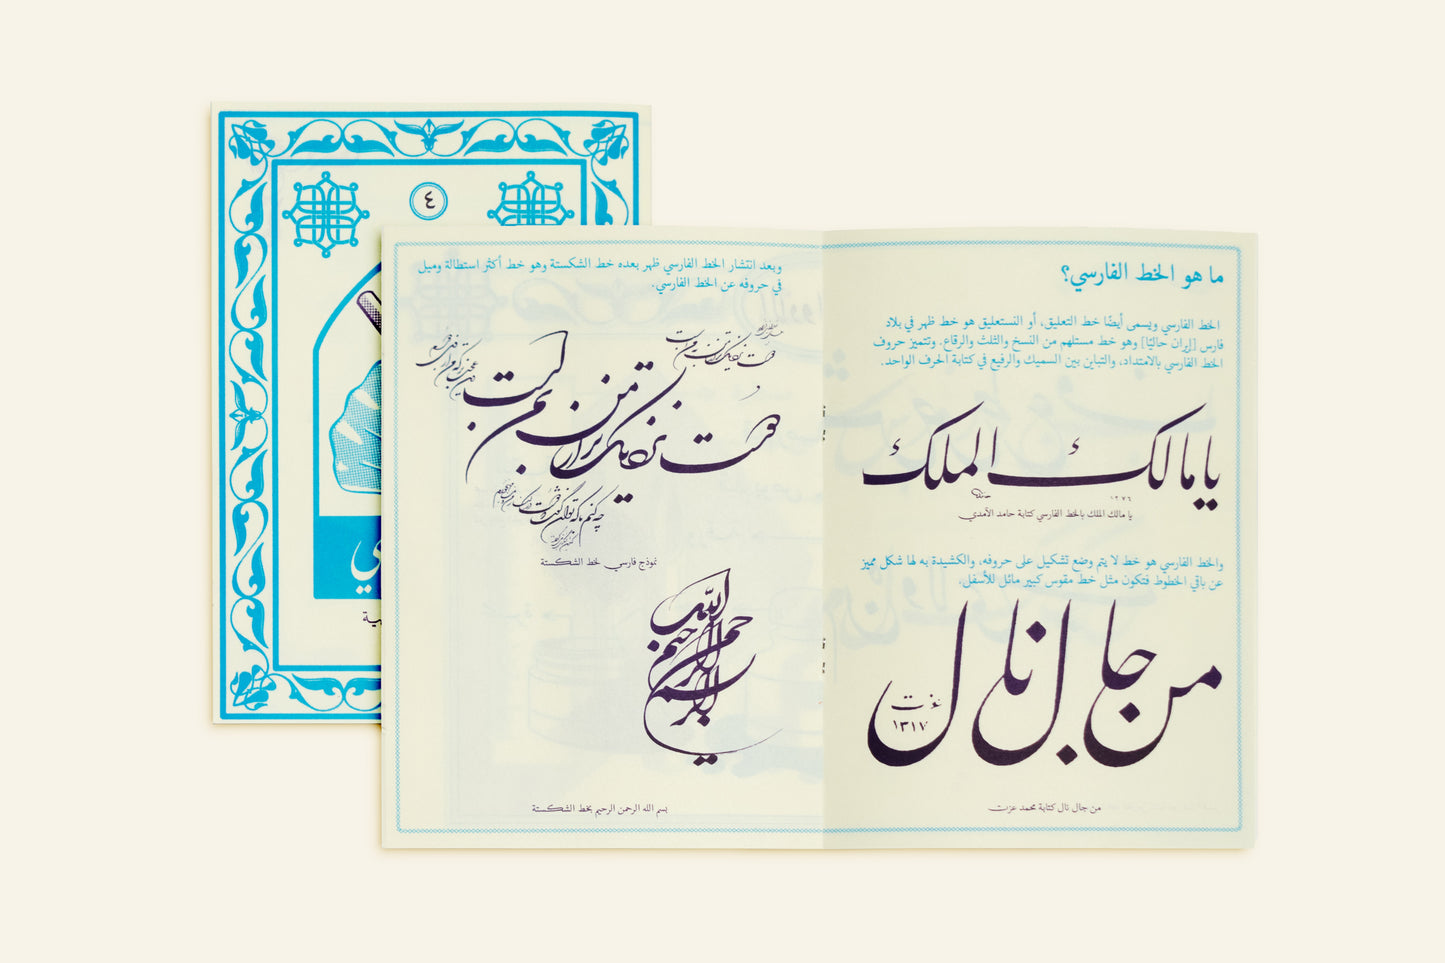 ما هو الخط الفارسي؟
الخط الفارسي ويسمى أيضًا خط التعليق، أو النستعليق هو خط ظهر في بلاد
فارس [إيران حاليًا] وهو خط مستلهم من النسخ والثلث والرقاع. وتتميز حروف
الخط الفارسي بالامتداد، والتباين بين السميك والرفيع في كتابة الحرف الواحد.
يا مالك الملك
١٣٧٦
حامد
يا مالك الملك بالخط الفارسي كتابة حامد الآمدي
والخط الفارسي هو خط لا يتم وضع تشكيل على حروفه، والكشيدة به لها شكل مميز
عن باقي الخطوط فتكون مثل خط مقوس كبير مائل للأسفل.
من جال نال
عزت
١٣١٧
من جال نال كتابة محمد عزت
وبعد انتشار الخط الفارسي ظهر بعده خط الشكستة وهو خط أكثر استطالة وميل
في حروفه عن الخط الفارسي.
دوست نزدیکتر از من به من است
چه کنم با که توان گفت که دوست
نموذج فارسي لخط الشكستة
بسم الله الرحمن الرحيم
بسم الله الرحمن الرحيم بخط الشكستة
٤